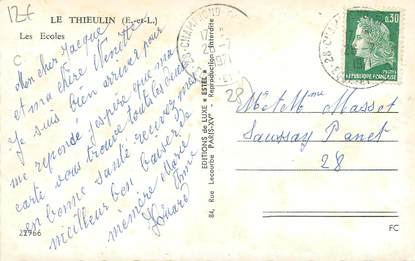 12€
LE THIEULIN (E.-et-L.)
Les Ecoles
C
Mon cher Jacque
et ma chère
Je suis bien arriver pour
me reposé j'espère que ma
carte vous trouve toutes deux
en bonne santé recevez mes
meilleur bon baiser De
mémère Marie
22966
EDITIONS de LUXE « ESTEL »
84, Rue Lecourbe PARIS-XVe
Reproduction Interdite
28-CHAMPROND
17
28-CH
0,30
REPUBLIQUE FRANÇAISE
28
Mr et Mme Massot
Saussay Panet
28
FC